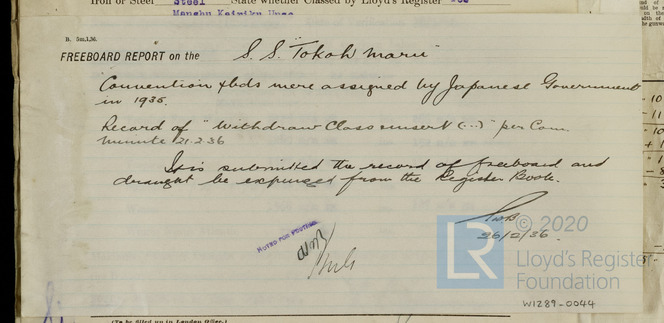 Iron or Steel Steel State whether Classed by Lloyd's Register
Manshu Kairiku Unso
B. 5m,1,36.
FREEBOARD REPORT on the S.S. "Tokoh Maru"
Convention fbds were assigned by Japanese Government
in 1935.
Record of "Withdraw Class insert (...)" per Com.
minute 21.2.36
It is submitted the record of freeboard and
draught be expunged from the Register Book.
26/2/36.
NOTED FOR POSTING
LR
© 2020
Lloyd's Register
Foundation
W1289-0044
(To be filled up in London Office.)